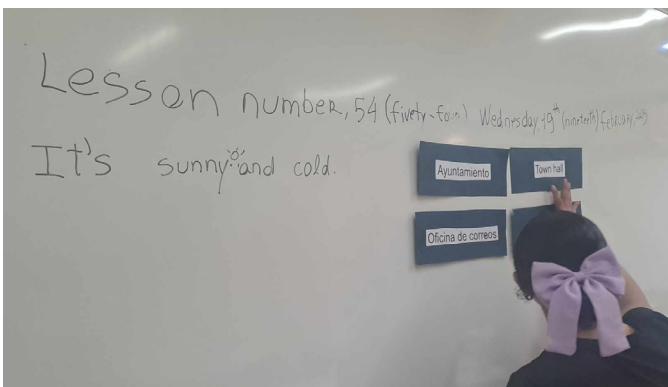 Lesson number, 54 (fivety-four) Wednesday, 19th (nineteeth) february,
It's sunny and cold.
Ayuntamiento
Town hall
Oficina de correos